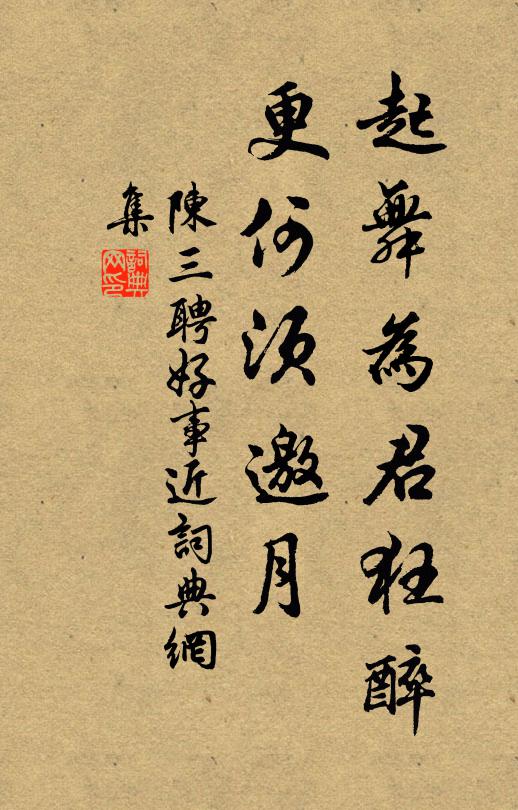 起舞為君狂醉
更何須邀月
陳三聘好事近詞典網
集
詞典网印